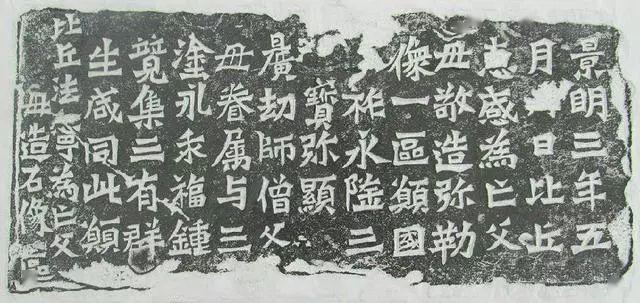 景明三年五
月日比丘
恵感為亡父
毋敬造弥勒
像一區願國
祚永隆三
寶弥顯
曠劫師僧父
毋眷属与三
塗永乖福鍾
競集三有群
生咸同此願
比丘法寧為亡父
毋造石像區